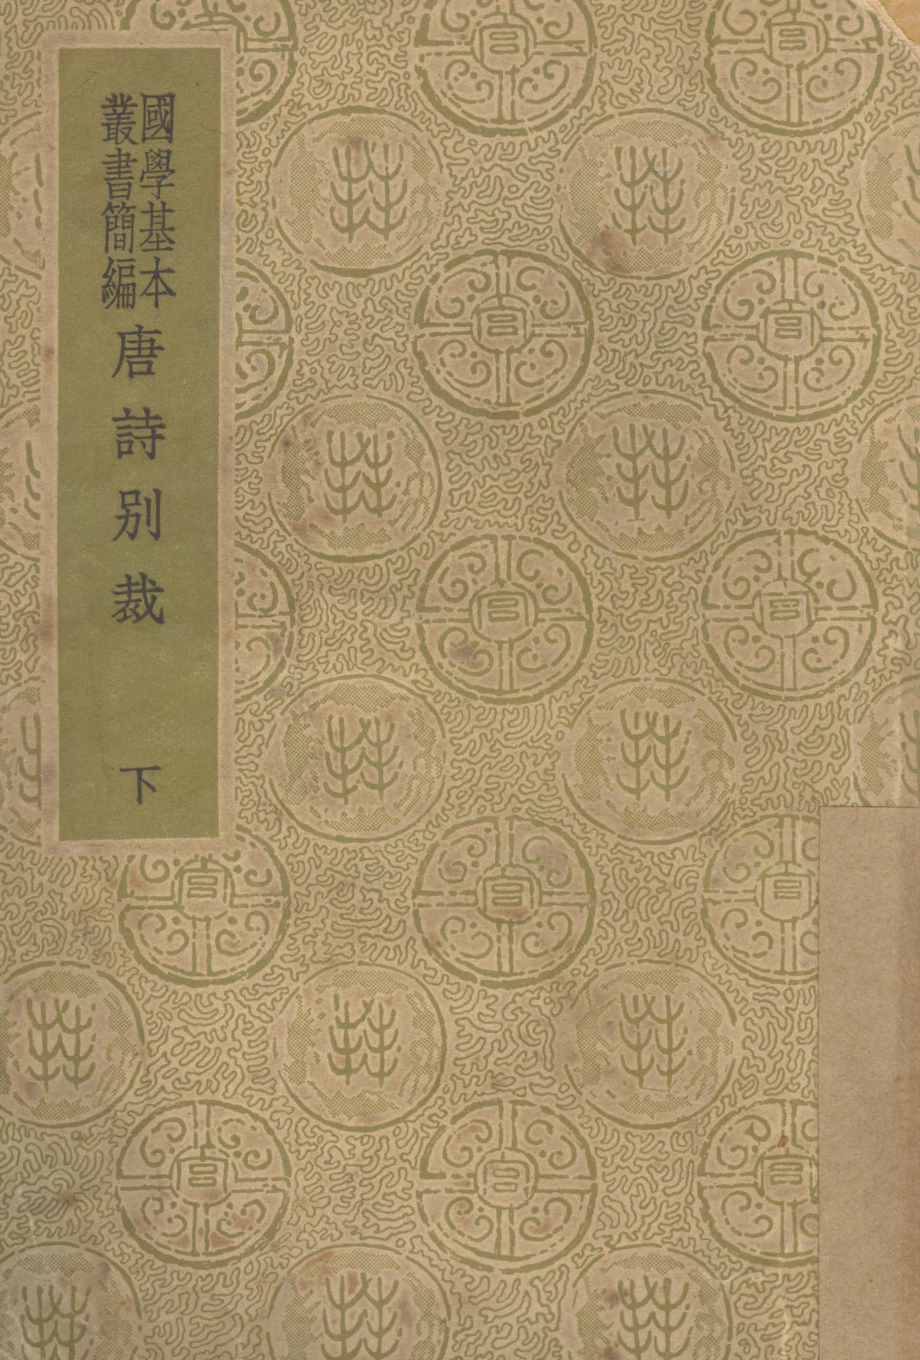 國學基本
叢書簡編
唐詩別裁
下